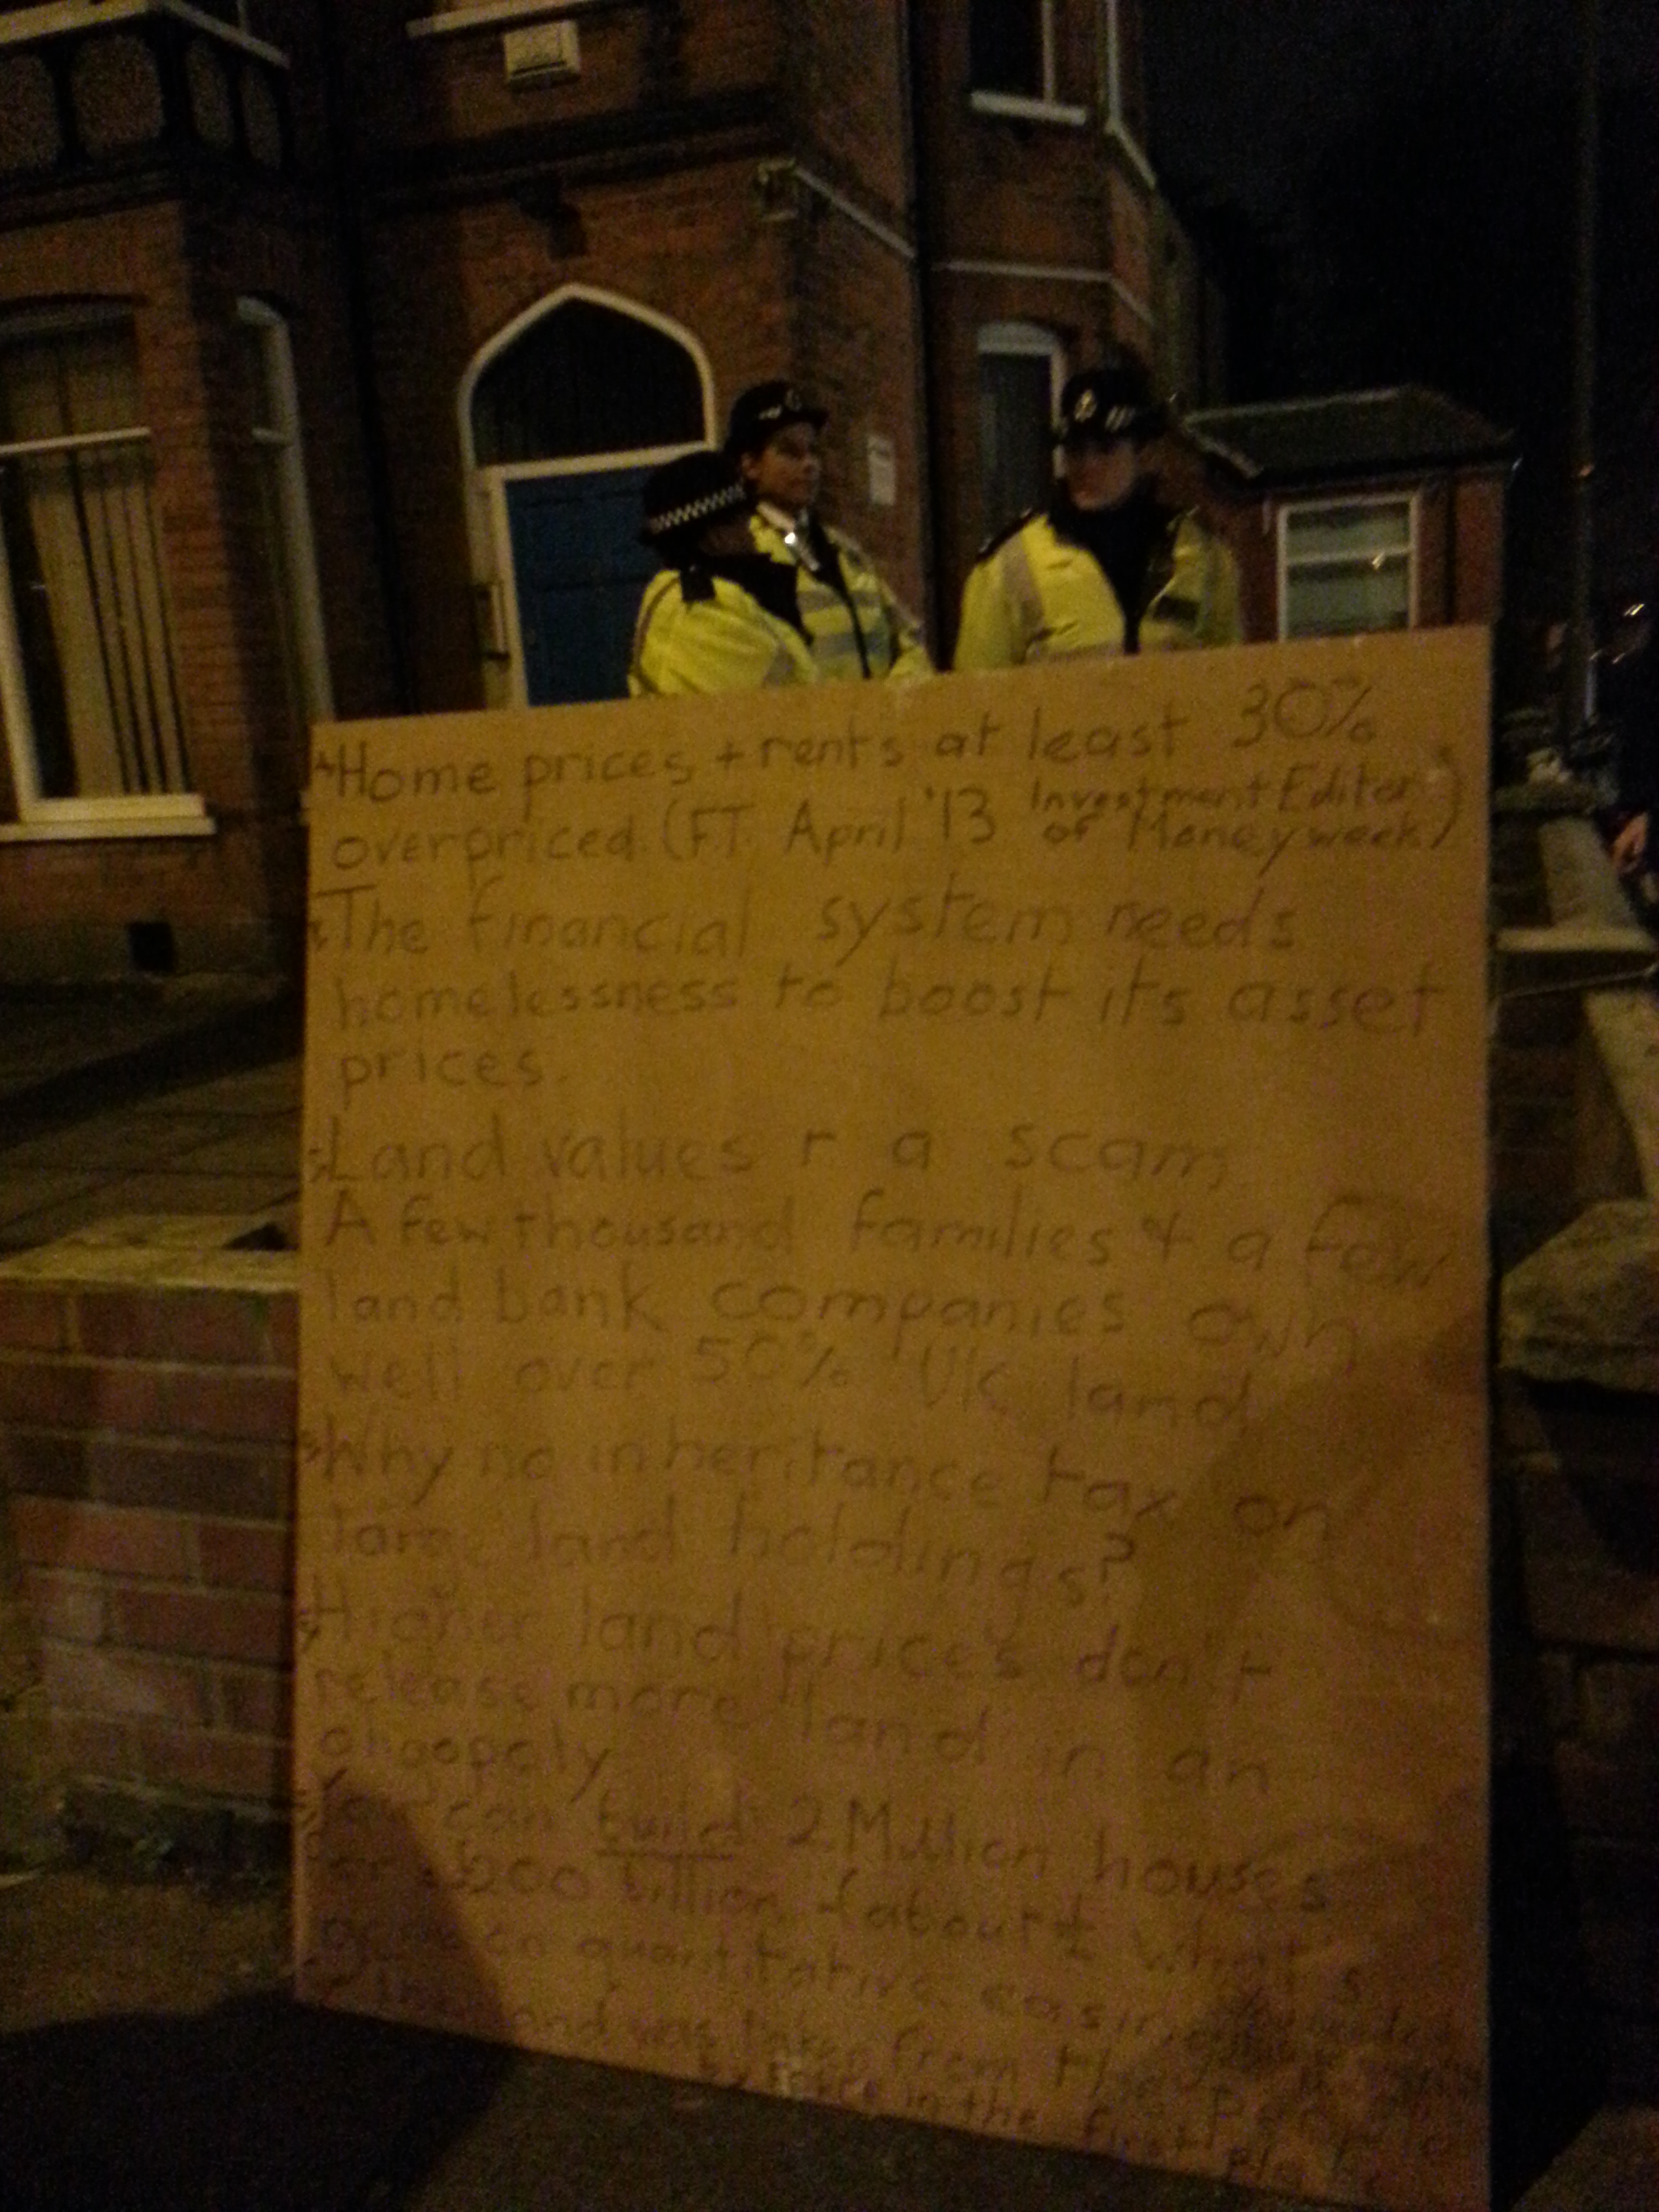 Home prices + rents at least 30%
overpriced (FT. April '13 Investment Editor
of Moneyweek)
The financial system needs
homelessness to boost its asset
prices.
Land values r a scam;
A few thousand families + a few
land bank companies own
well over 50% UK land
Why no inheritance tax on
large land holdings?
Higher land prices don't
release more land in an
oligopoly
You can build 2 Million houses
for £200 billion, (about ½ what's
on quantitative easing
land was taken from the People
in the first place